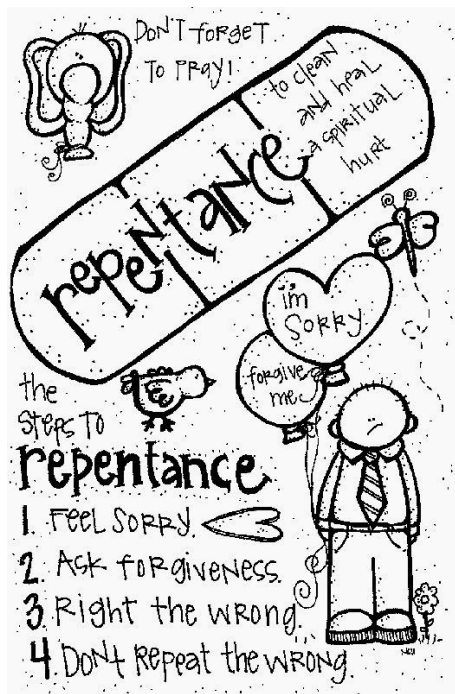 DON'T forget
TO PRAY!
to clean
and heal
a spiritual
hurt
repentance
i'm
SORRY
forgive
me
the
STEPS TO
repentance
1. FEEL SORRY.
2. ASK foRgiveNess.
3. Right the wrong.
4. DoN't Repeat the wroNg.